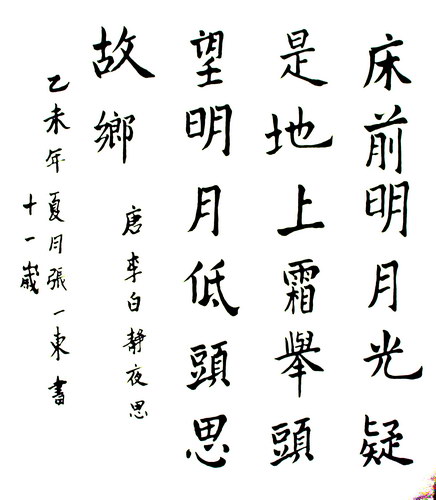 床前明月光疑
是地上霜舉頭
望明月低頭思
故鄉
唐李白靜夜思
乙未年夏月張一東書
十一歲